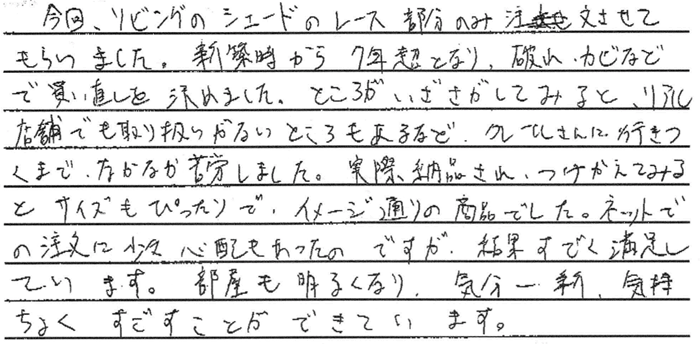 今回、リビングのシェードのレース部分のみ注文させて
もらいました。新築時から7年超となり、破れ、カビなど
で買い直しを決めました。ところがいざさがしてみると、リアル
店舗でも取り扱いがないところもあるなど、クレールさんに行きつ
くまで、なかなか苦労しました。実際納品され、つけかえてみる
とサイズもぴったりで、イメージ通りの商品でした。ネットで
の注文に少々心配もあったのですが、結果すごく満足し
ています。部屋も明るくなり、気分一新、気持
ちよくすごすことができています。